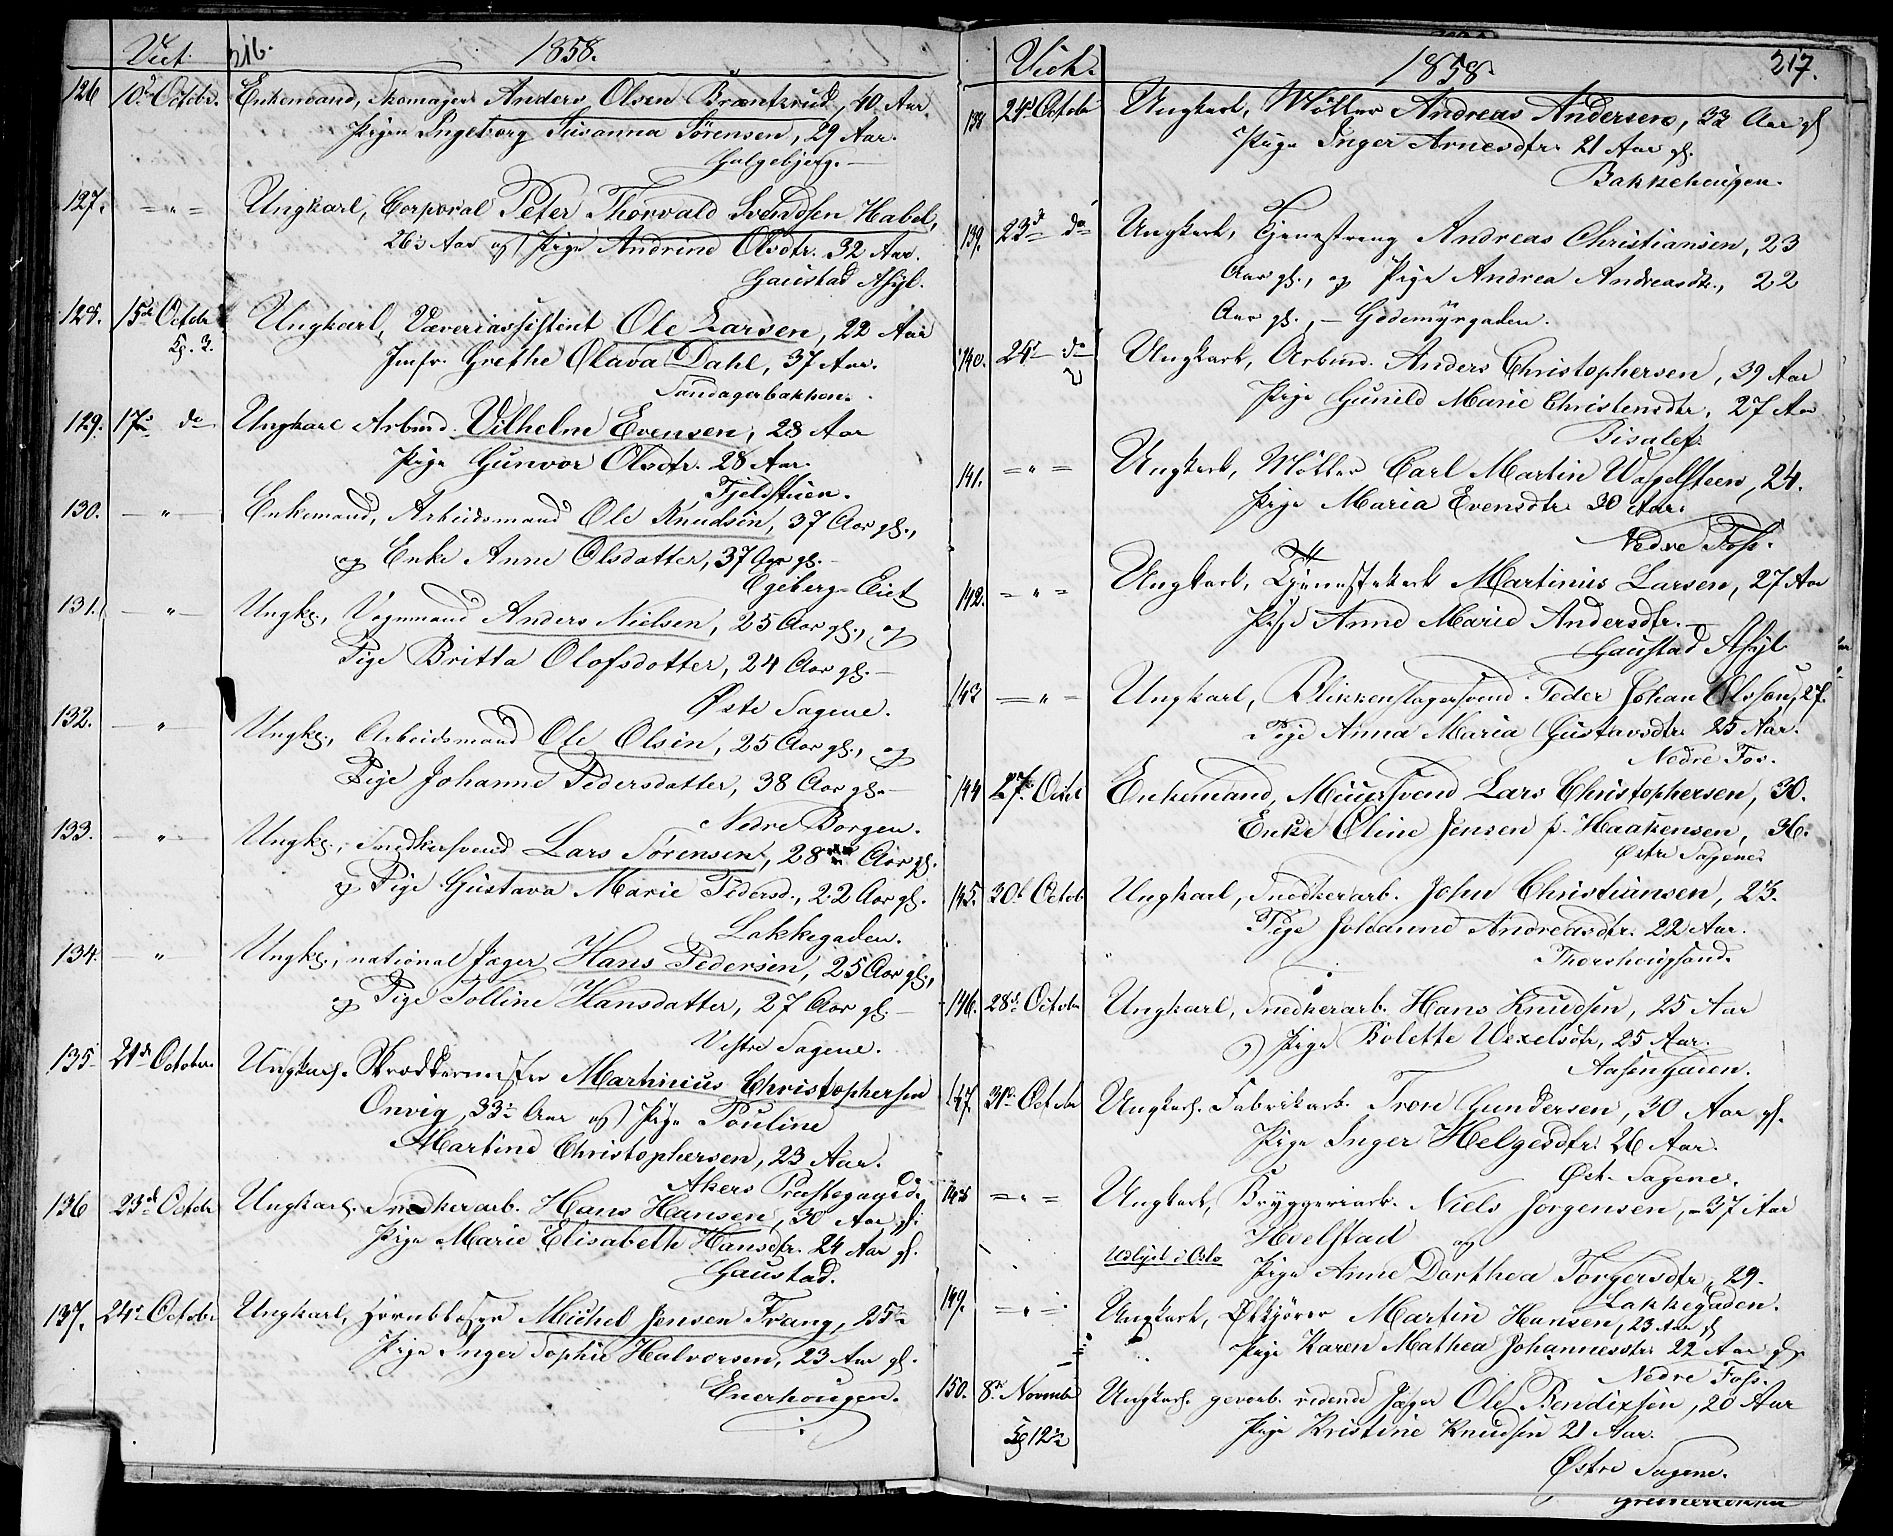 Viet. 216. 1858.
126 10de Octobr. Enkemand, Skomager Anders Olsen Brantzrud, 40 Aar.
Pigen Ingeborg Susanna Sörensen, 29 Aar.
Galgebjerg.
127. " Ungkarl, Corporal Peter Thorvald Svendsen Habel,
26½ Aar og Pige Andrine Olsdtr. 32 Aar.
Gaustad Asyl.
128. 15de Octobr Ungkarl, Væveriassistent Ole Larsen, 22 Aar
Kl. 3. Jmfr. Grethe Olava Dahl, 37 Aar.
Sandagerbakken.
129. 17de do Ungkarl Arbmd. Vilhelm Evensen, 28 Aar
Pige Gunvor Olsdtr. 28 Aar.
Fjeldstuen.
130. " Enkemand, Arbeidsmand Ole Knudsen, 37 Aar gl.,
og Enke Anne Olsdatter, 37 Aar gl.
Egeberg-Eiet
131. " Ungk., Vognmand Anders Nielsen, 25 Aar gl., og
Pige Britta Olofsdotter, 24 Aar gl.
Østre Sagene.
132. " Ungk., Arbeidsmand Ole Olsen, 25 Aar gl., og
Pige Johanne Pedersdatter, 38 Aar gl.
Nedre Borgen.
133. " Ungk., Snedkersvend Lars Sörensen, 28 Aar gl.
og Pige Gustava Marie Pedersd., 22 Aar gl.
Lakkegaden.
134. " Ungk., national Jæger Hans Pedersen, 25 Aar gl.,
og Pige Polline Hansdatter, 27 Aar gl.
Vestre Sagene.
135. 21de October Ungkarl. Skræddermester Martinius Christophersen
Onvig, 33½ Aar og Pige Pouline
Martine Christophersen, 23 Aar.
Akers Præstegaard.
136 23de Octobr Ungkarl. Snedkerarb. Hans Hansen, 30 Aar gl.
Pige Marie Elisabeth Hansdtr. 24 Aar gl.
Gaustad.
137. 24de Octobr Ungkarl, Hornblæser Michel Jensen Frang, 25½
Pige Inger Sophie Halvorsen, 23 Aar gl.
Enerhougen.
Vieh. 1858. 217.
138 24de Octobr Ungkarl, Möller Andreas Andersen, 33 Aar gl
Pige Inger Arnesdtr. 21 Aar gl.
Bakkehaugen.
139. 23de do Ungkarl, Tjenestdreng Andreas Christiansen, 23
Aar gl., og Pige Andrea Andreasdtr., 22
Aar gl., Gödemyrgaden.
140. 24de do Ungkarl, Arbmd. Anders Christophersen, 39 Aar
Pige Gunild Marie Christensdtr, 27 Aar
Bisalet.
141. " Ungkarl, Möller Carl Martin Wagelsteen, 24.
Pige Maria Evensdtr. 30 Aar.
Nedre Foss.
142. " Ungkarl, Tjenestekarl Martinus Larsen, 27 Aar
Pige Anne Marie Andersdtr.
Gaustad Asyl
143 " Ungkarl, Blikkenslagersvend Peder Johan Olsson, 27.
Pige Anna Maria Gustavsdtr. 25 Aar.
Nedre Fos.
144 27de Octbr Enkemand, Muursvend Lars Christophersen, 30.
Enke Oline Jensen f. Haakensen, 36.
Østre Sagene.
145. 30te Octob Ungkarl, Snedkerarb. John Christiansen, 23.
Pige Johanne Andreasdtr. 22 Aar.
Thorshougsund.
146. 28de Octobr Ungkarl, Snedkerarb. Hans Knudsen, 25 Aar
og Pige Bolette Wexelsdtr, 25 Aar.
Aasengaden.
147. 31te Octobr Ungkarl. Fabrikarb. Tron Gundersen, 30 Aar gl.
Pige Inger Helgesdtr. 26 Aar.
Øst. Sagene.
148 " Ungkarl, Bryggeriarb. Niels Jorgensen, 37 Aar
Hvelstad og
Udlyst i Oslo Pige Anne Dorthea Torgersdtr, 29.
Lakkegaden.
149. " Ungkarl, Ølkjörer Martin Hansen, 23 Aar gl
Pige Karen Mathea Johannesdtr. 22 Aar gl.
Nedre Foss.
150. 8de Novembr Ungkarl. gevorb. ridende Jæger Ole Bendixsen, 20 Aar
Kl 12½ Pige Kristine Knudsen 21 Aar.
Østre Sagene.